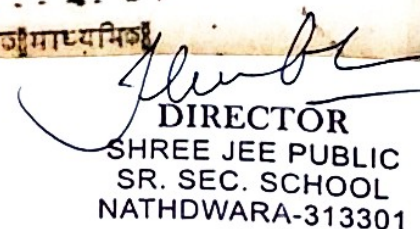 माध्यमिक
DIRECTOR
SHREE JEE PUBLIC
SR. SEC. SCHOOL
NATHDWARA-313301